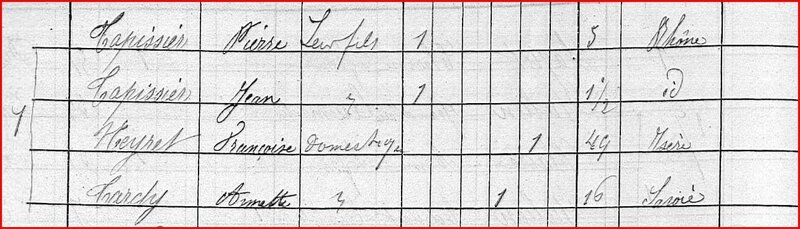 Tapissier Pierre Leur fils 1 5 Rhône
Tapissier Jean " 1 1 1/2 id
Heyret Françoise domestique 1 49 Isère
Tardy Annette " 1 16 Savoie